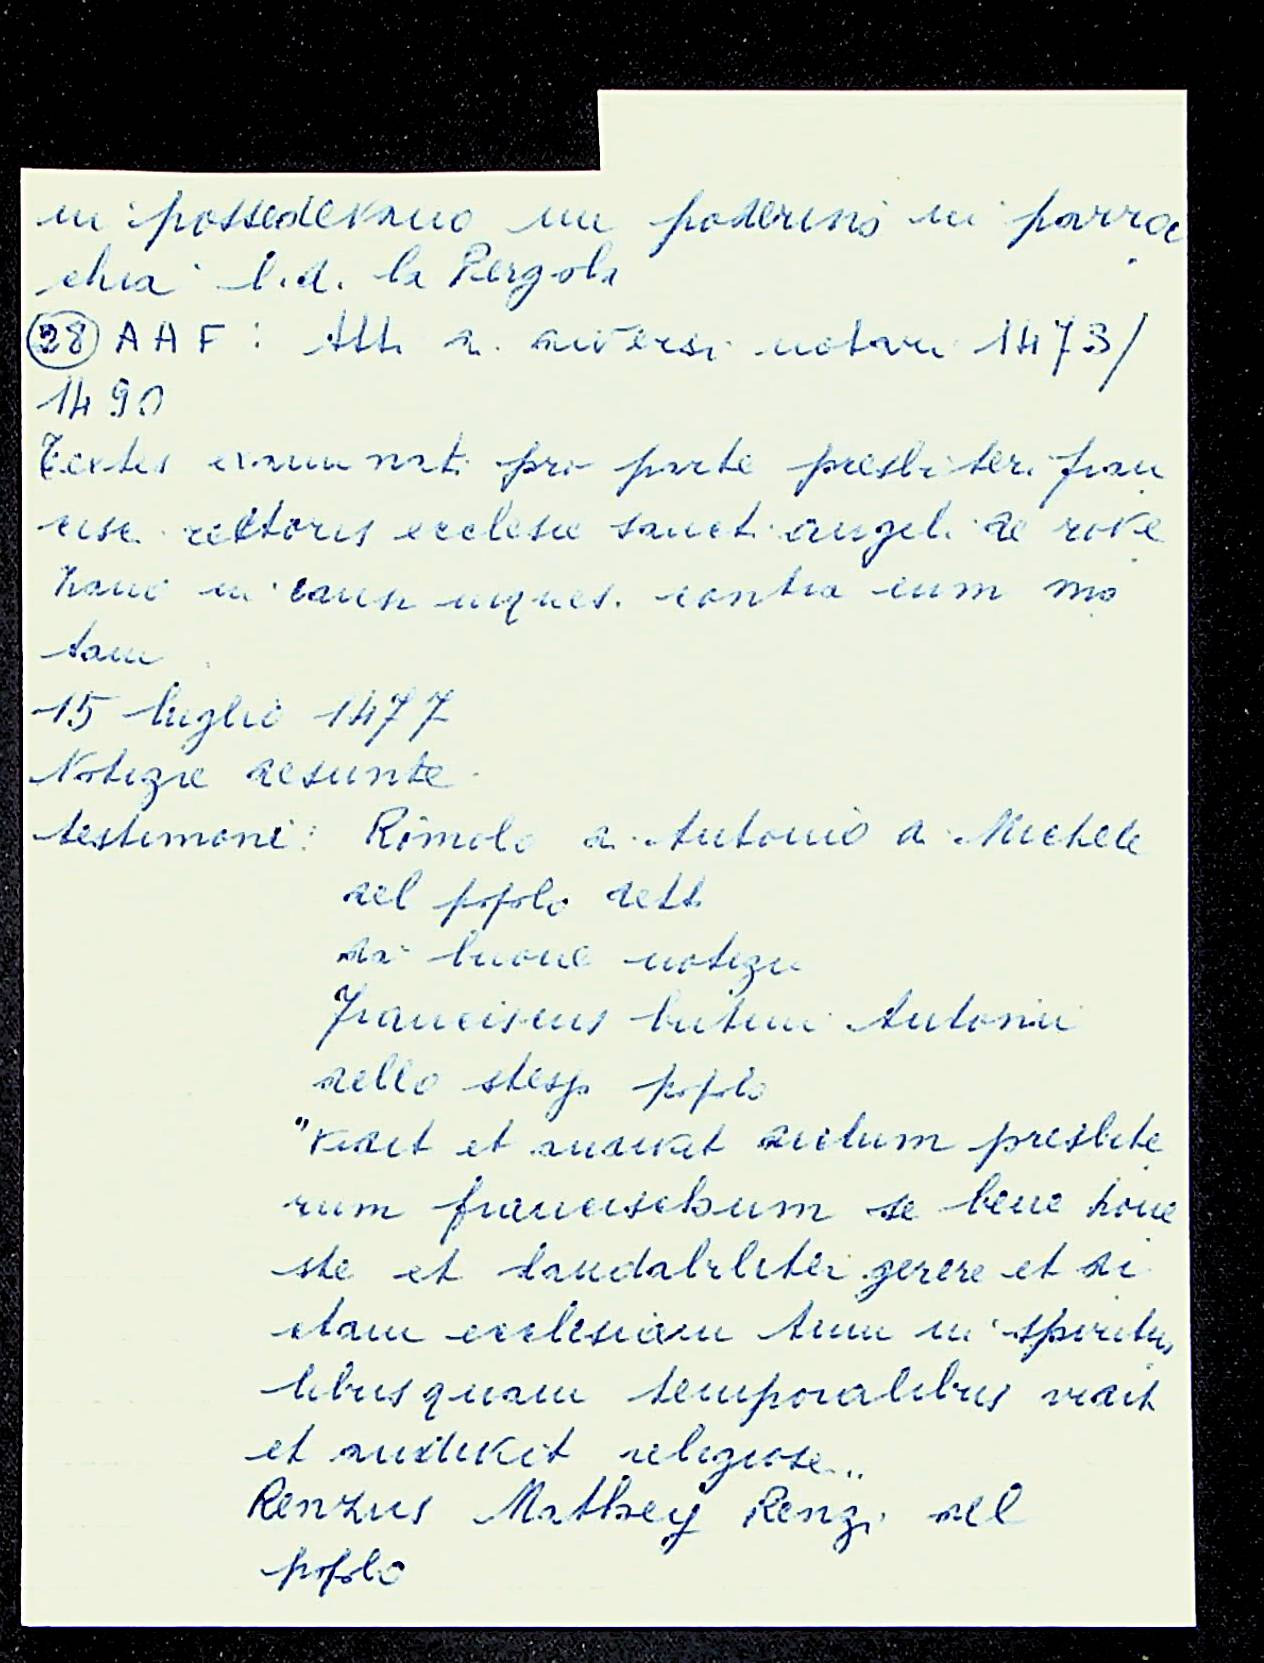 ni possedevano un poderino in parroc
chia l.d. la Pergola
28 AAF: Atti di diversi notari 1473/
1490
Testes examinati pro parte presbiteri fran
cisci rectoris ecclesie sancti angeli de rove
zano in causa inquis. contra eum mo
tam
15 luglio 1477
Notizie desunte
testimoni: Romolo di Antonio di Michele
del popolo detto
dà buone notizie
Franciscus butini Antonii
dello stesso popolo
"vidit et audivit dictum presbite
rum francischum se bene hone
ste et laudabiliter gerere et di
ctam ecclesiam tum in spiritua
libus quam temporalibus vidit
et audivit religiose..
Renzus Mathey Renzi del
popolo